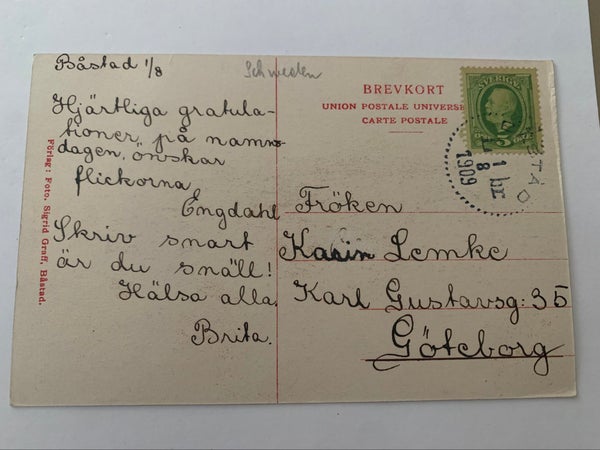 Båstad 1/8
Schweden
Hjärtliga gratula-
tioner på namns-
dagen, önskar
flickorna
Engdahl
Skriv snart
är du snäll!
Hälsa alla.
Brita.
Förlag: Foto. Sigrid Graff, Båstad.
BREVKORT
UNION POSTALE UNIVERSE
CARTE POSTALE
SVERIGE
5
1
8
1909
Fröken
Karin Lemke
Karl Gustavsg: 35
Göteborg